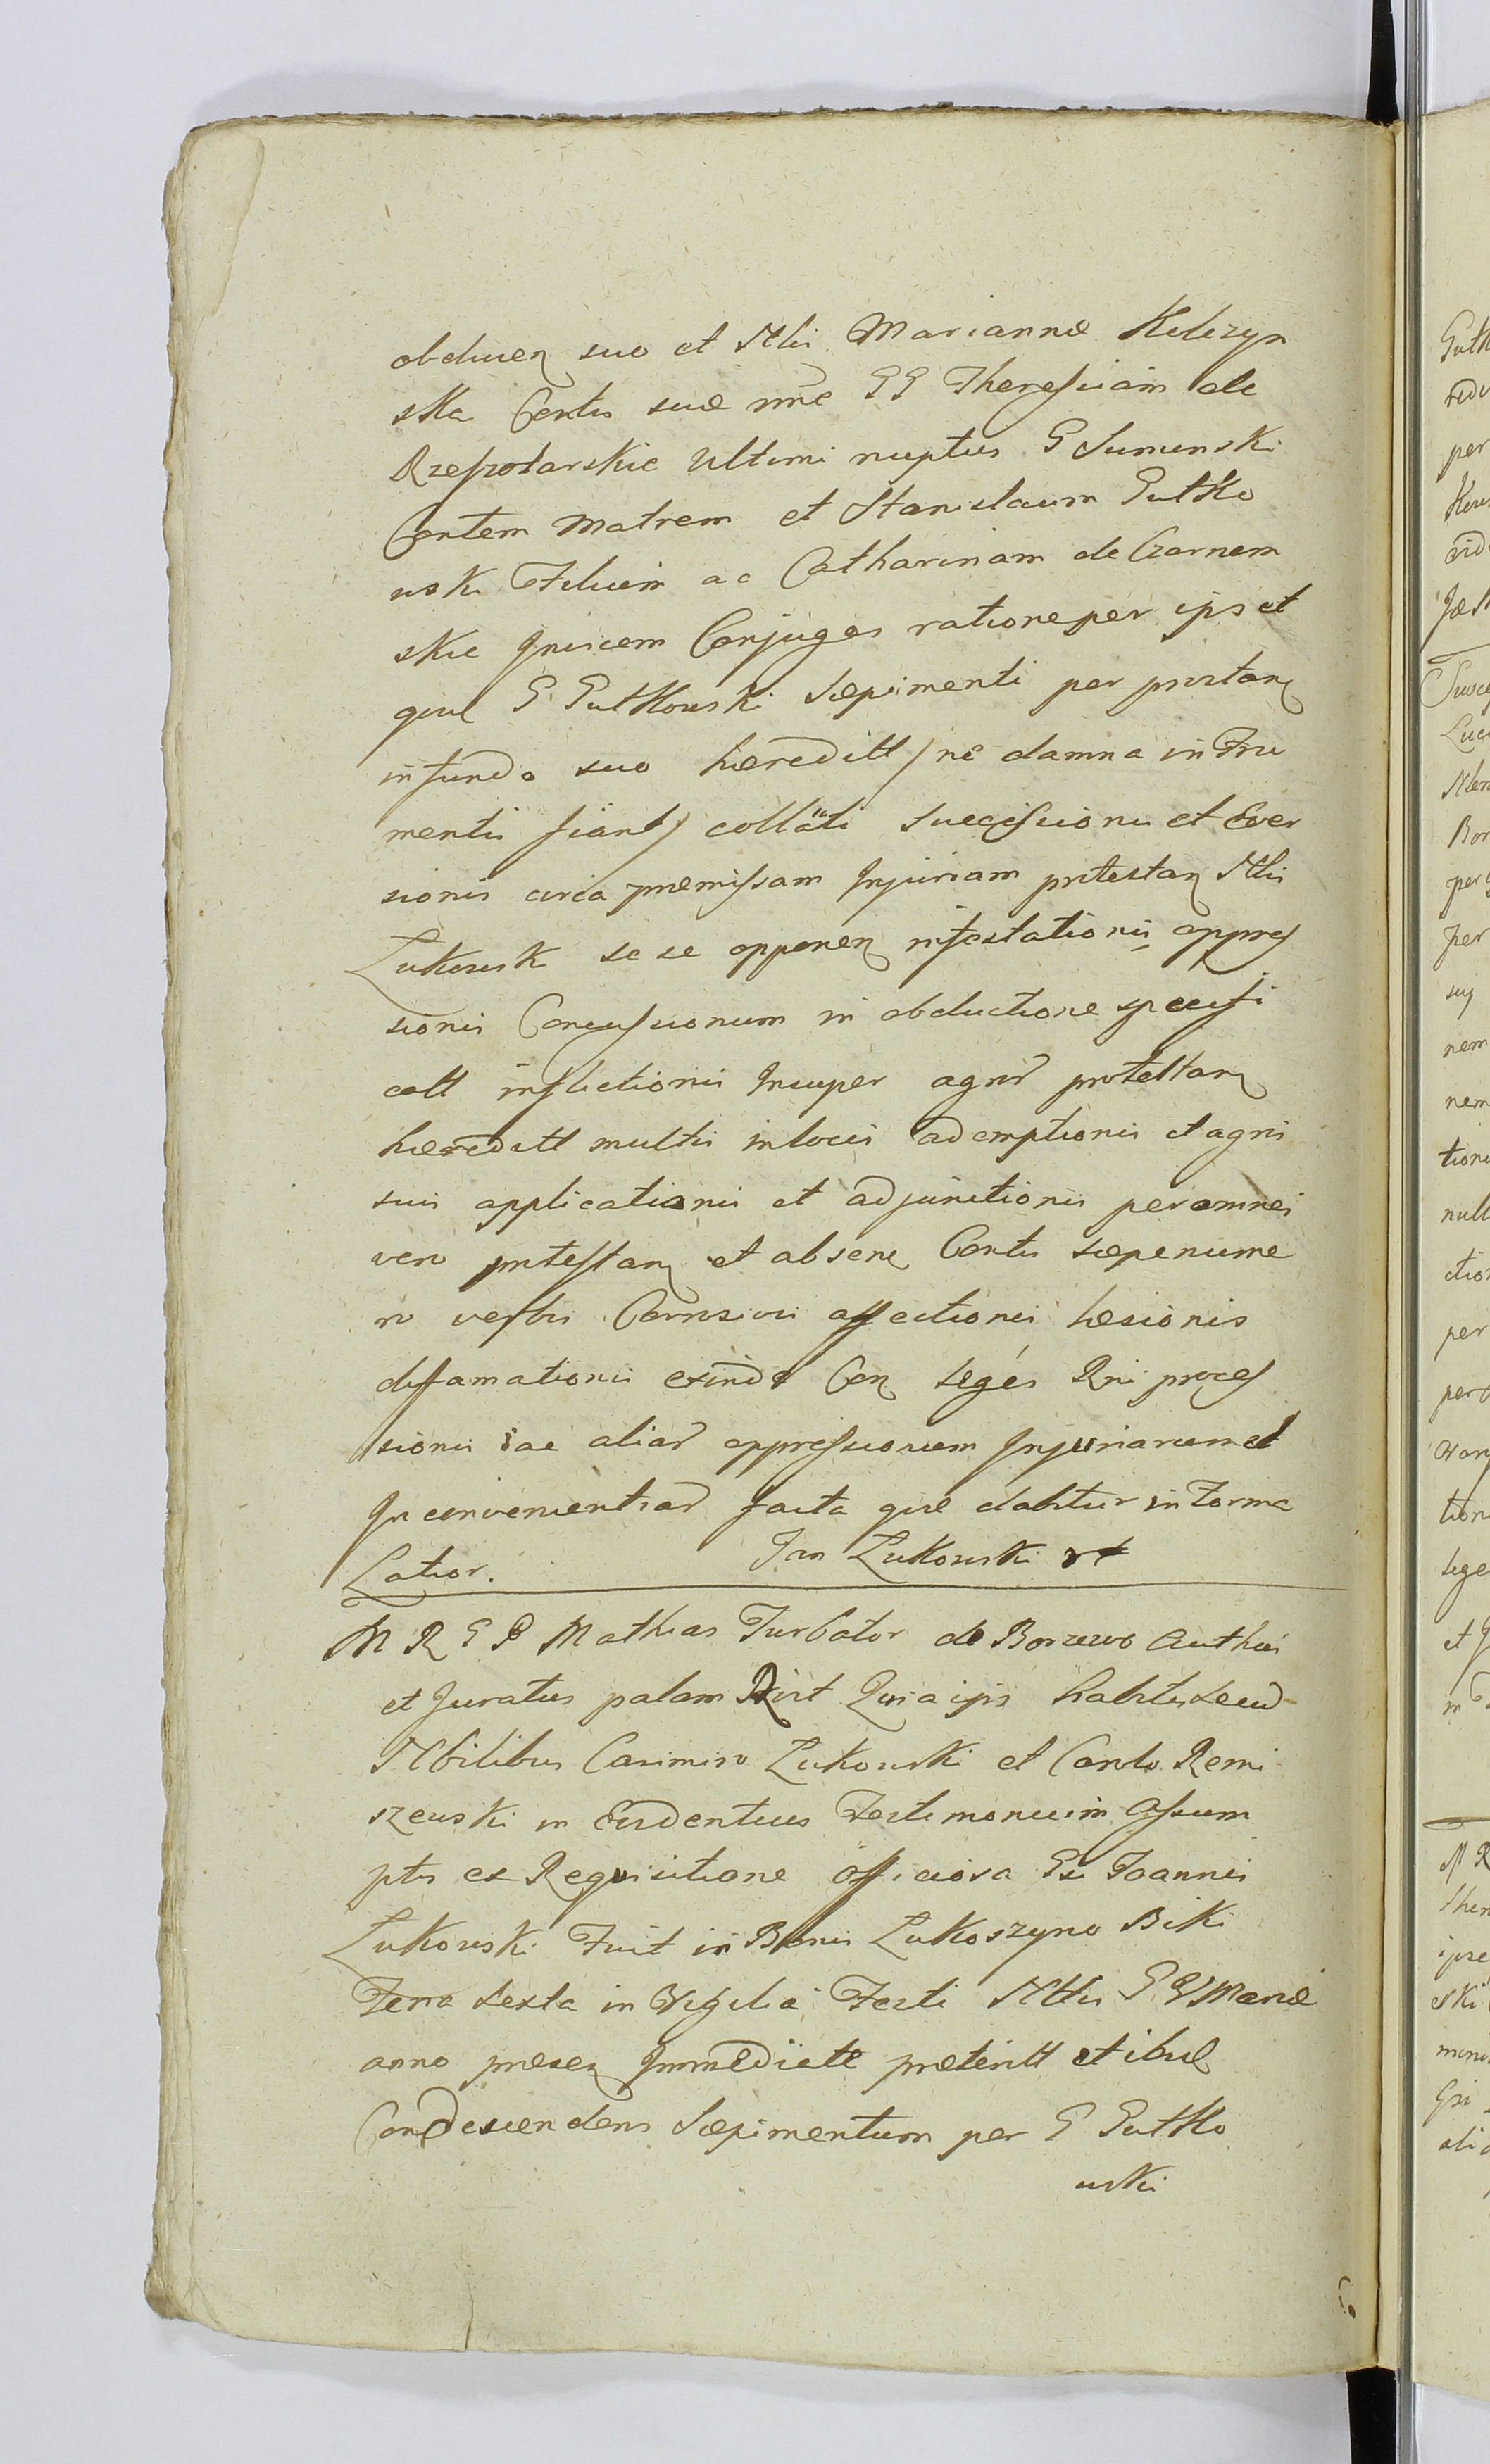 obducen suo et Nlis Mariannæ Kelczyn
ska Contis suæ nne GG Theressiam de
Rzeszotarskie ultimi nuptus G Sumenski
Contem Matrem et Stanislaum Gutko
wski Filium ac Catharinam de Czarnem
skie Invicem Conjuges ratione per ips et
quæ G Gutkowski Sepimenti per protan
in fundo suo hæreditt / ne damna in Fru
mentis fiant / collati Succissionis et Ever
sionis circa præmissam Injuriam protestan Nlis
Lukowsk se se opponen infestationis oppres
sionis Concussionum in obductione specifi
catt inflictionis Insuper agror protestan
hæreditt multis in locis ademptionis et agris
suis applicationis et adjunctionis per omnes
vero protestan et absen Contis sæpenume
ro verbis Corrosivis affectionis læsionis
diffamationis exinde Con leges Rni proces
sionis ac aliar oppressionum Injuriarum et
Inconvenientiar facta quæ dabitur in Forma
Latior. Jan Lukowski
M R G P Mathias Turbator de Borzewo Authus
et Juratus palam Rcit Quia ips habitis secu
Nbilibus Casimiro Lukowski et Carolo Remi
szewski in Evidentius Testimonium Assum
ptis ex Requisitione officiosa Gsi Joannis
Lukowski Fuit in Bonis Lukoszyno Biki
Feria sexta in Vigilia Festi Nttis G V Mariæ
anno præsen Immediate præteritt et ibid
Condescendens Sepimentum per G Gutko
wski
Gutk
per
nem
nem
null
per
M R